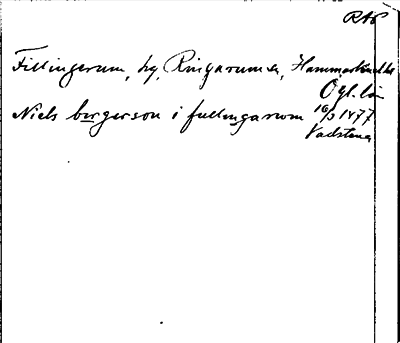 RAP
Fillingerum, hg, Ringarums sn, Hammarkinds hd
Ögl. län
Niels bergerson i fullingarwm 16/3 1477
Vadstena